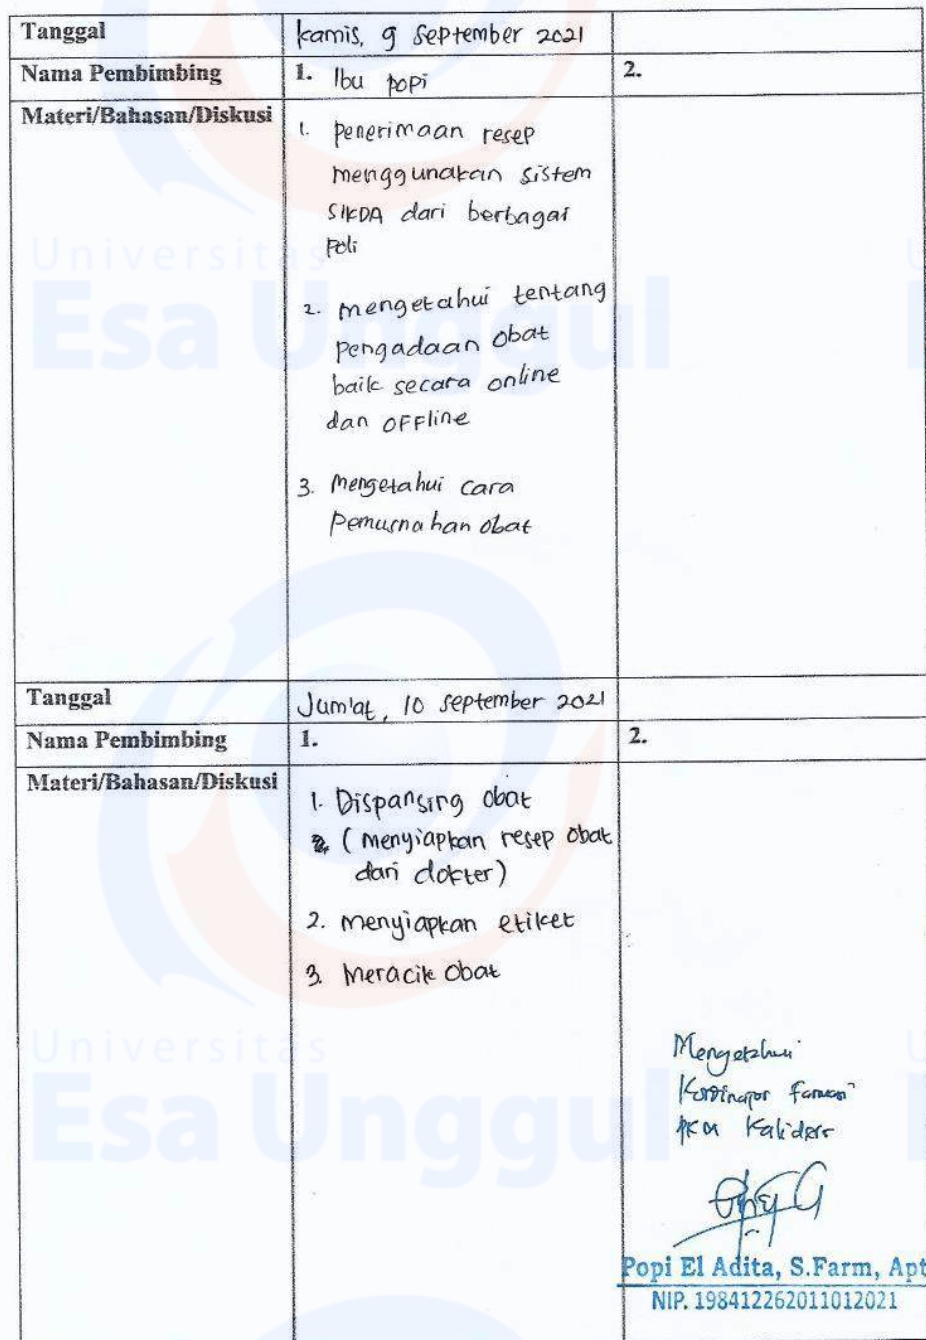 Tanggal
kamis, 9 September 2021
Nama Pembimbing
1. Ibu popi
2.
Materi/Bahasan/Diskusi
1. penerimaan resep
menggunakan sistem
SIKDA dari berbagai
Poli
2. mengetahui tentang
pengadaan obat
baik secara online
dan offline
3. Mengetahui cara
Pemusnahan obat
Tanggal
Jum'at, 10 September 2021
Nama Pembimbing
1.
2.
Materi/Bahasan/Diskusi
1. Dispansing obat
(menyiapkan resep obat
dari dokter)
2. menyiapkan etiket
3. Meracik obat
Mengetahui
Koordinator Farmasi
PKM Kalideres
Popi El Adita, S.Farm, Apt
NIP. 198412262011012021
Universitas
Esa Unggul
Universitas
Esa Unggul